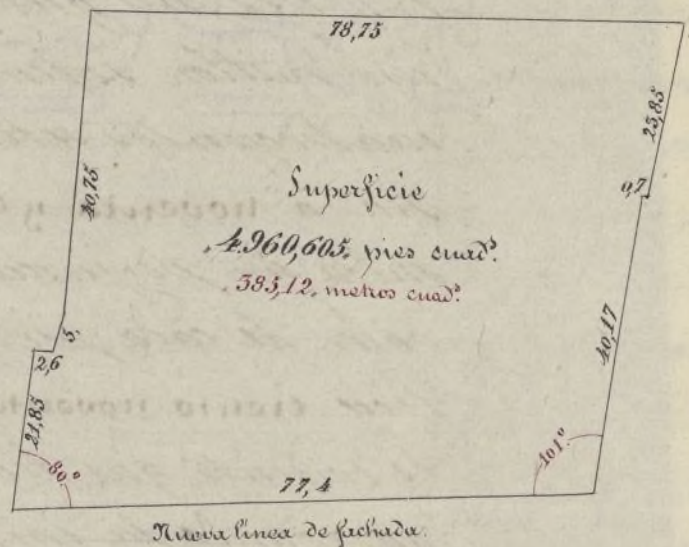 78,75
23,85
40,75
0,7
Superficie
4.960,605. pies cuad.ˢ
385,12. metros cuad.ˢ
40,17
5,
2,6
21,85
80.º
101.º
77,4
Nueva linea de fachada.